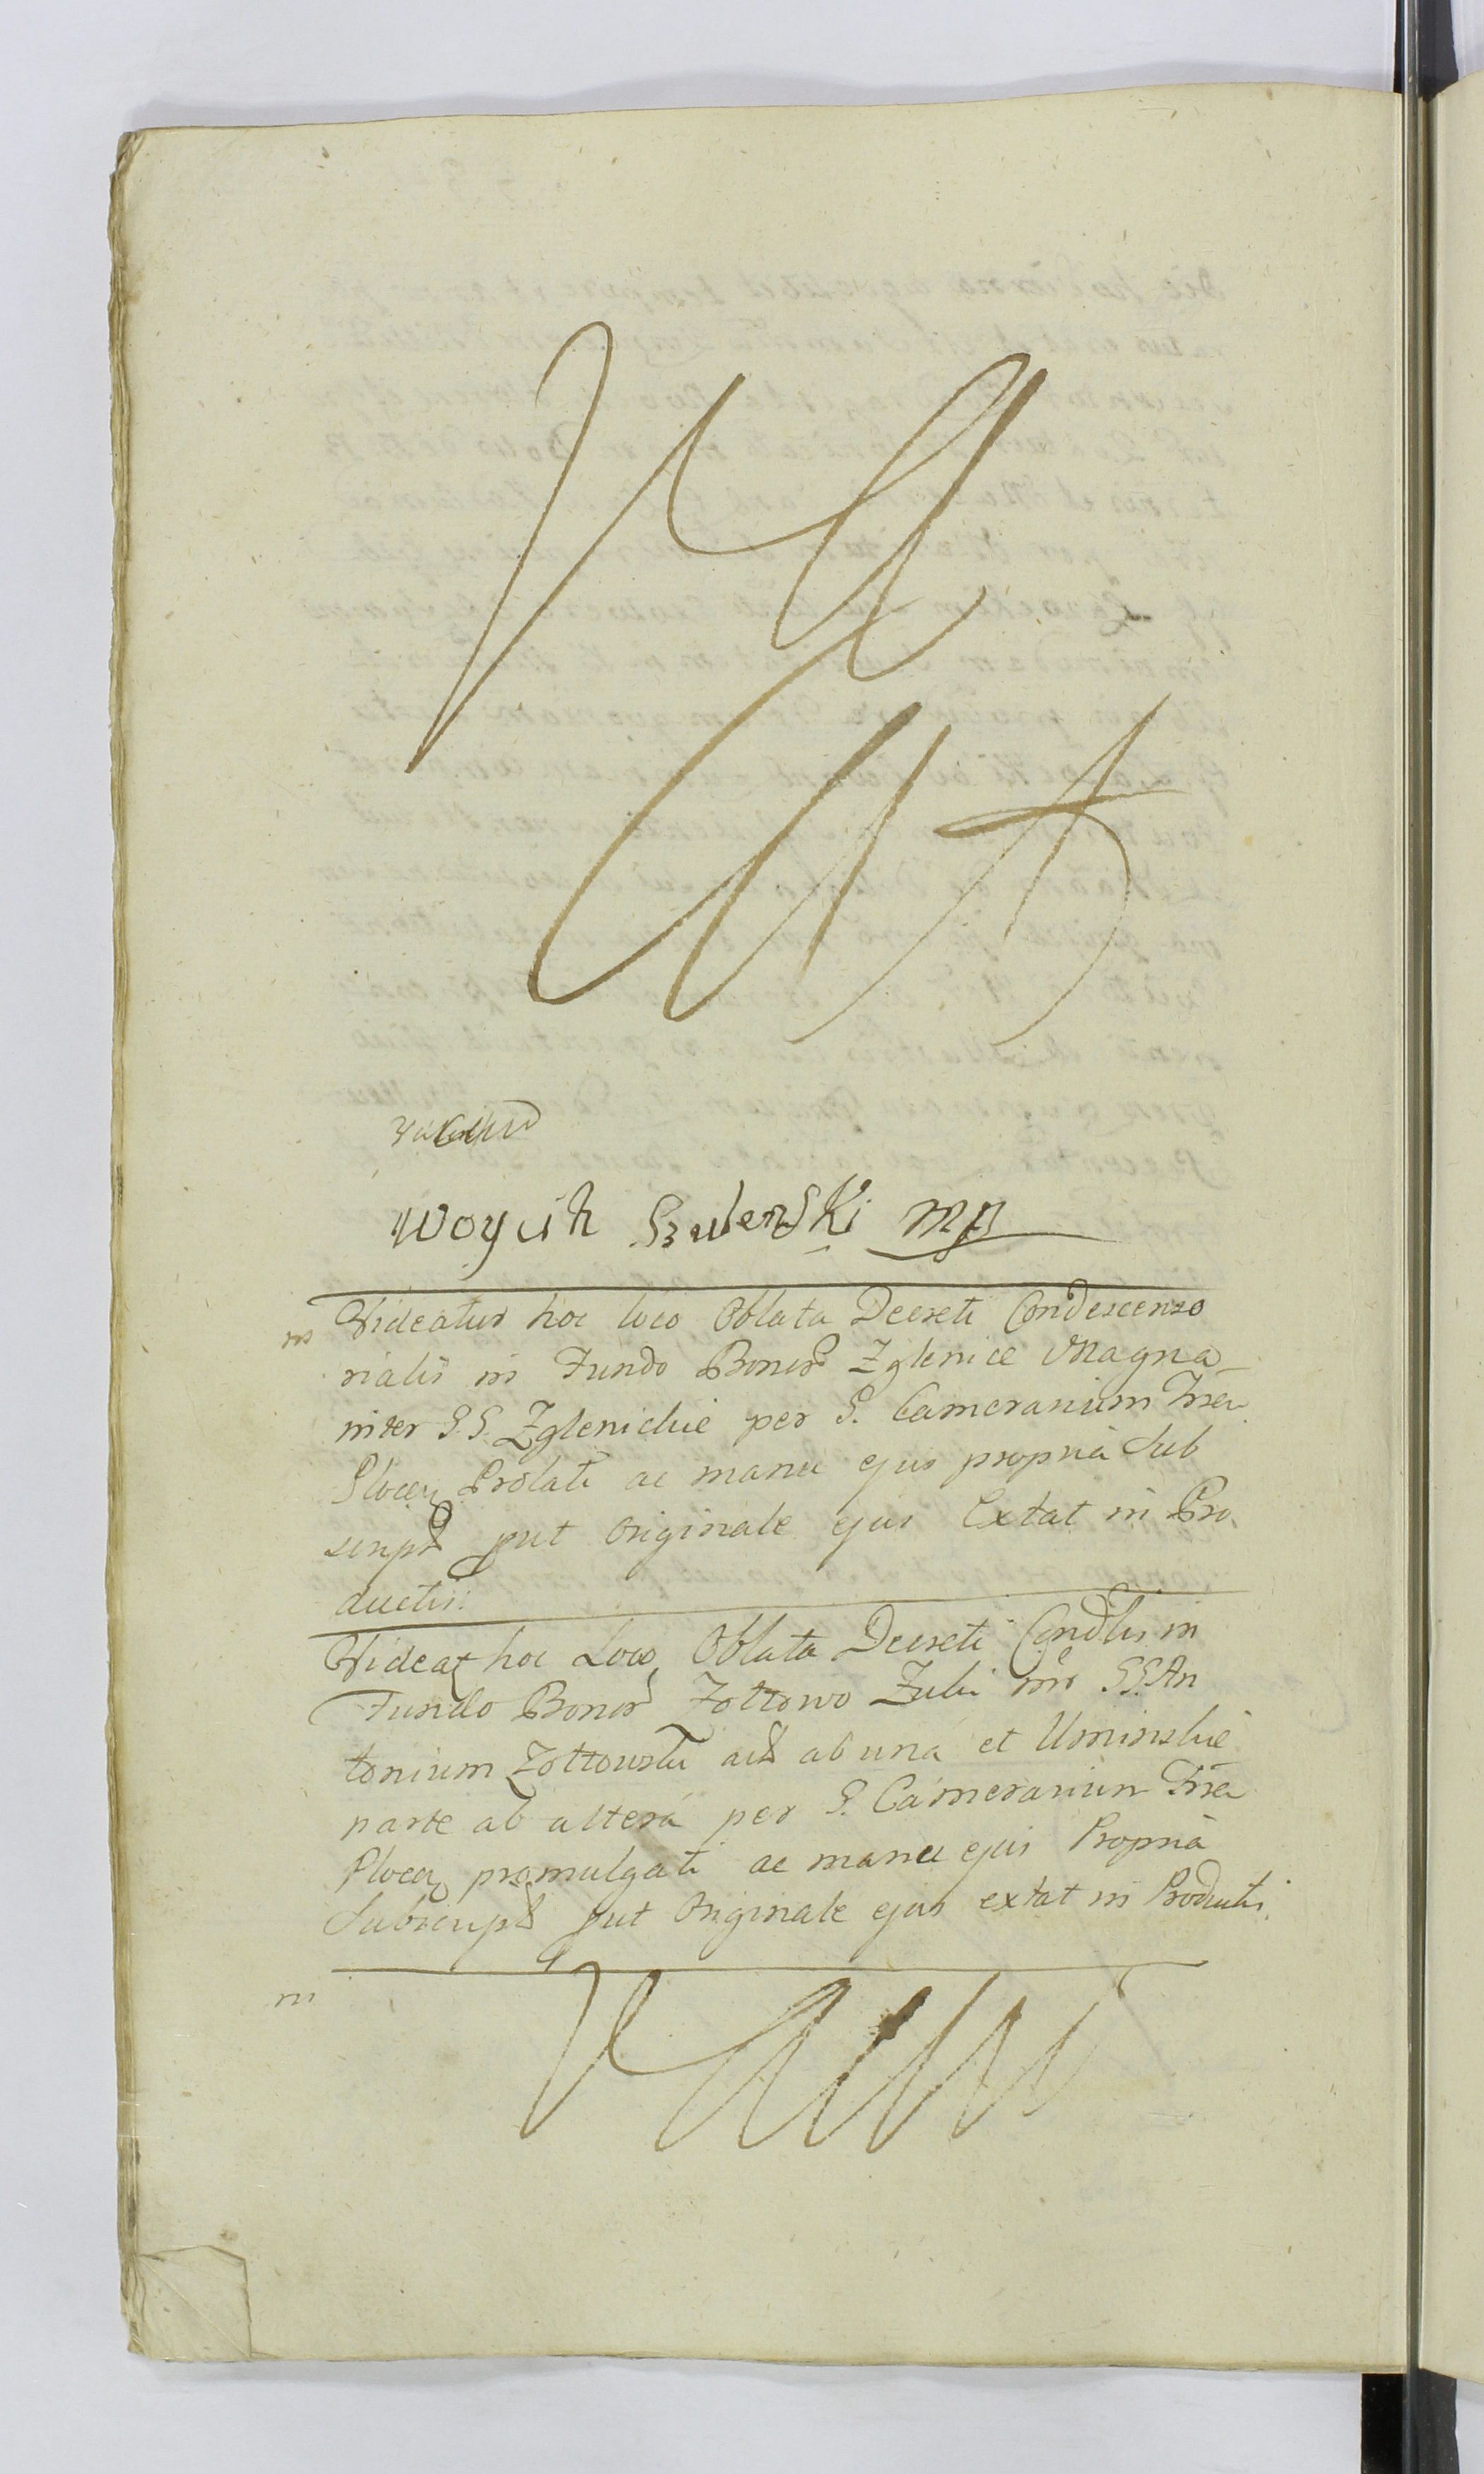 Va
cat
Woycih Szulerski mp
Videatur hoc loco Oblata Decreti Condescenso
rialis in Fundo Bonor Zglenice Magna
inter G.G. Zglenickie per G. Camerarium Trae
Plocen Prolati ac manu ejus propriâ Sub
script put Originale ejus Extat in Pro
ductis.
Videat hoc Loco Oblata Decreti Condlis in
Fundo Bonor Zottowo Zuki inr GG. An
tonium Zottowski ab una et Uminskie
parte ab alterâ per G. Camerarium Trae
Plocen promulgati ac manu ejus Propriâ
Subscript put Originale ejus extat in Productis.
Vacat